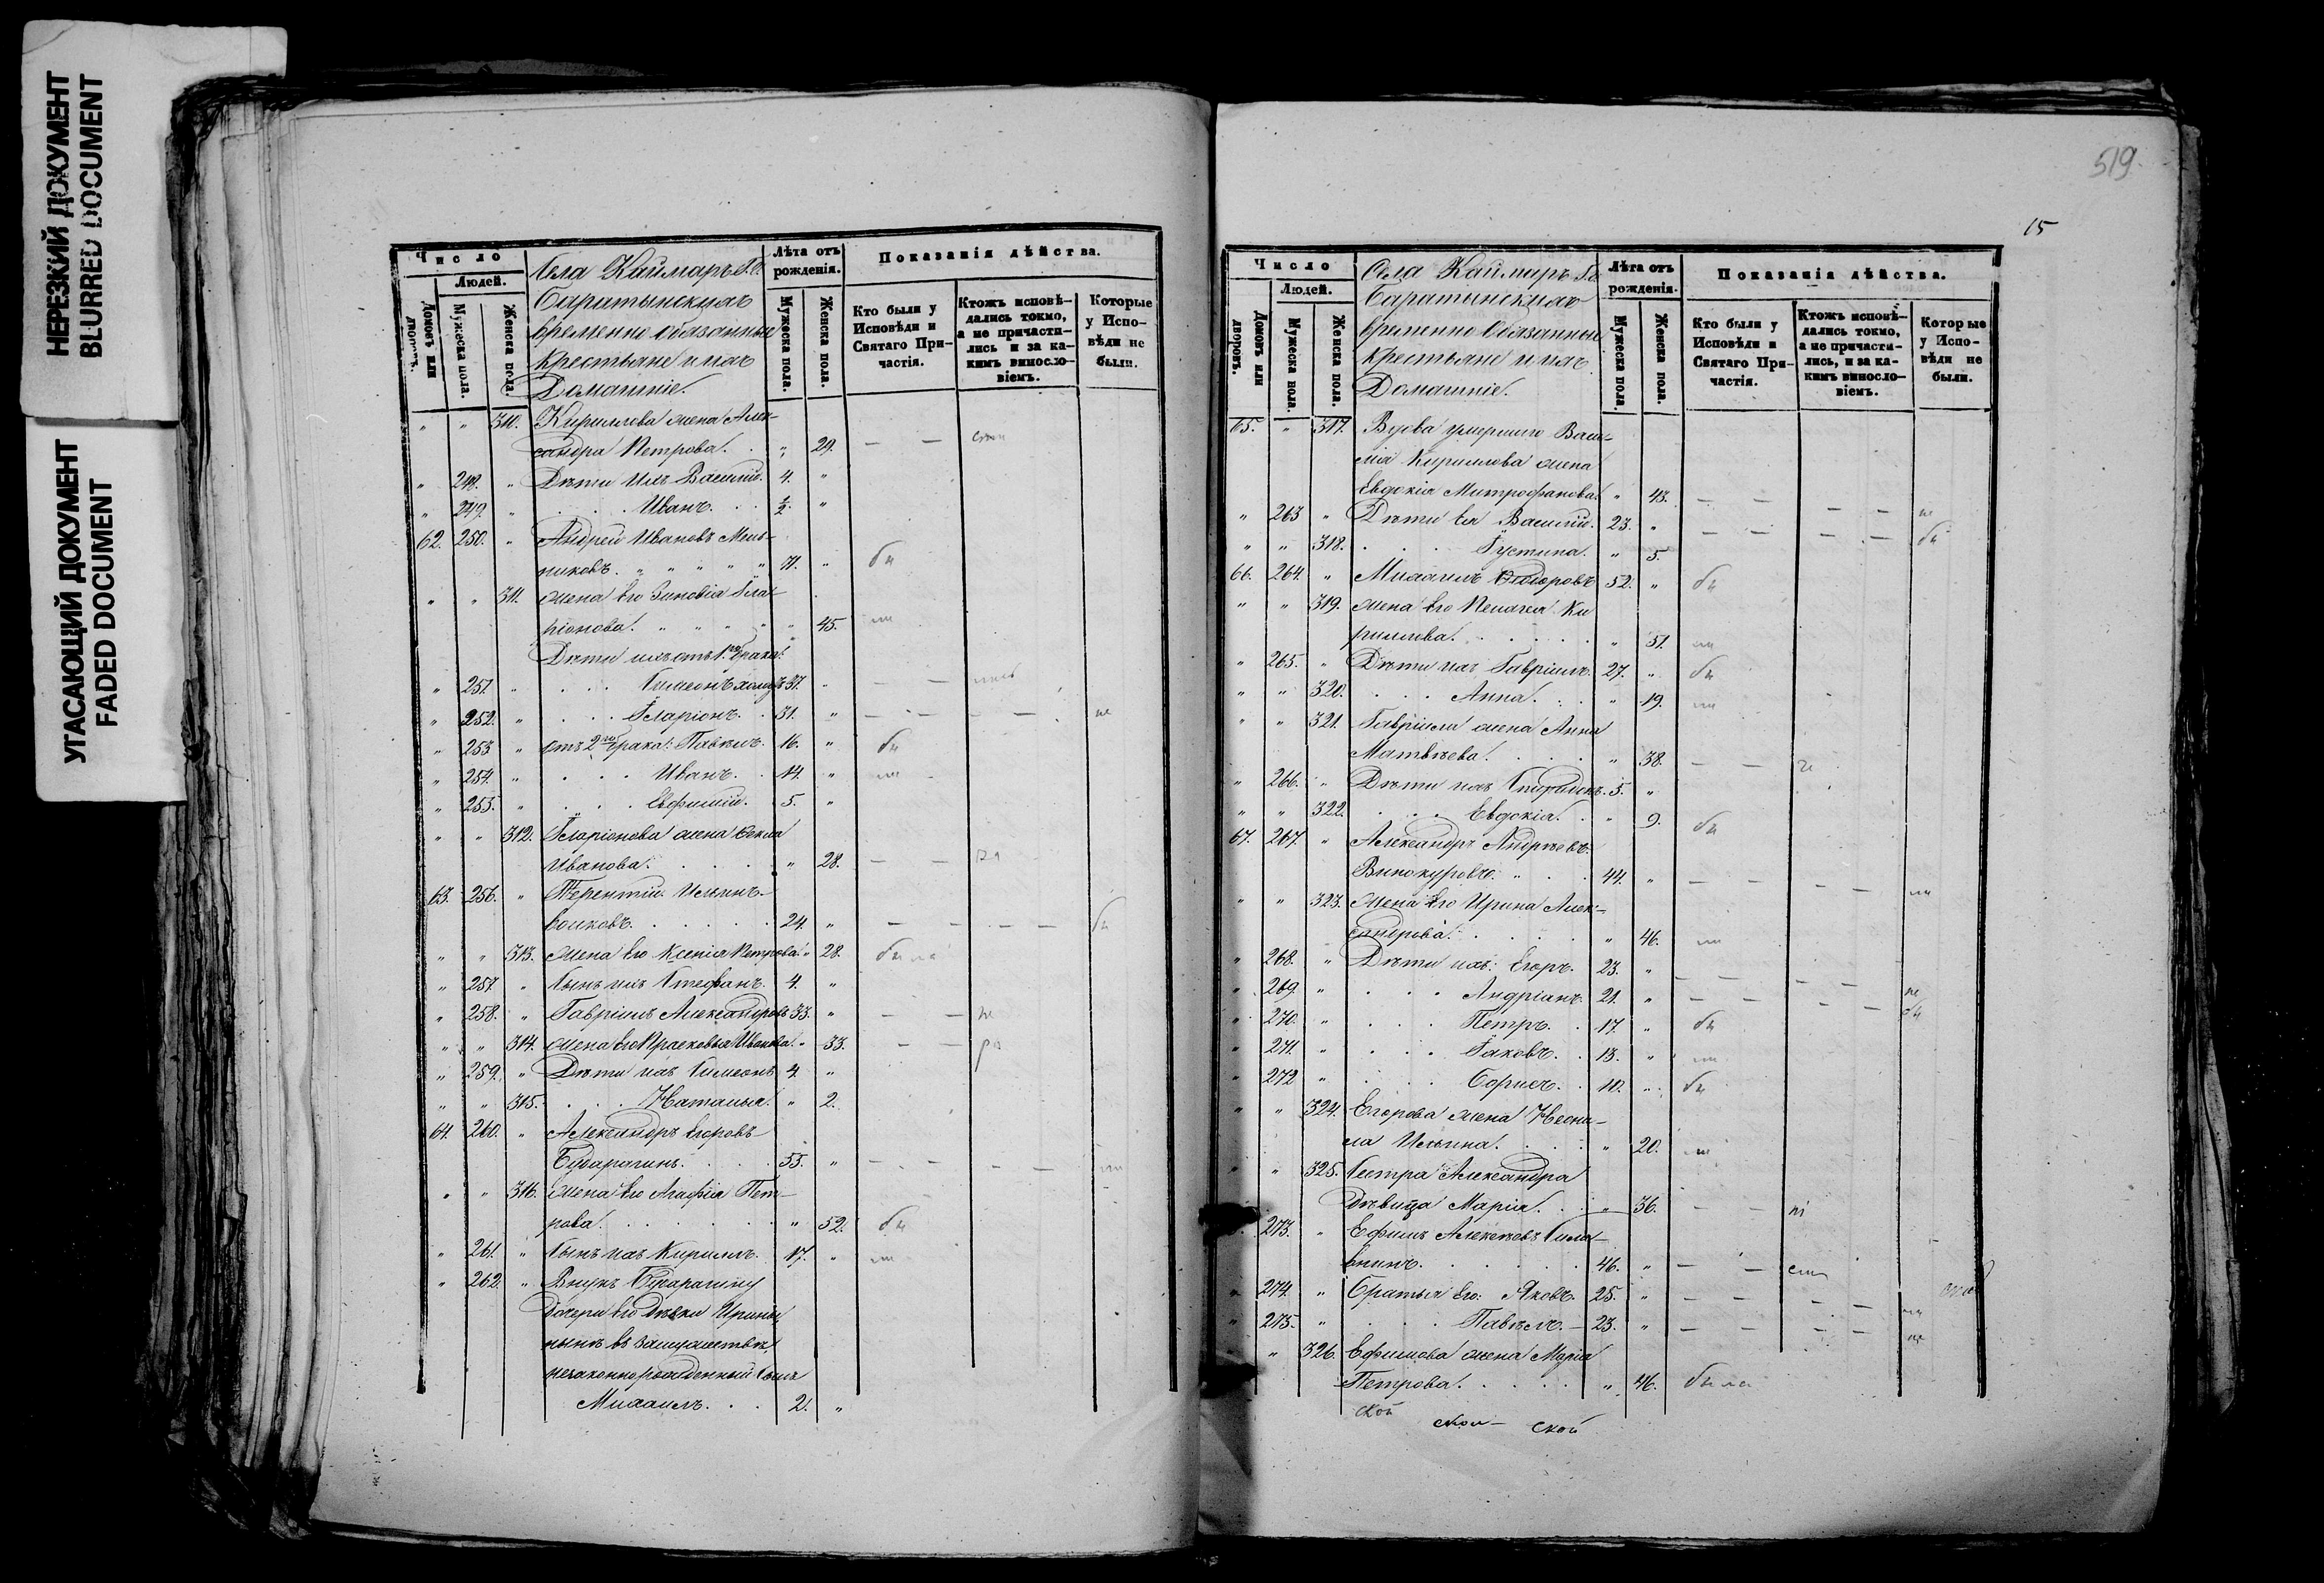 НЕРЕЗКИЙ ДОКУМЕНТ
BLURRED DOCUMENT
УГАСАЮЩИЙ ДОКУМЕНТ
FADED DOCUMENT
Число
Людей.
Домовъ или дворовъ.
Мужеска пола.
Женска пола.
Села Каймаръ Г.г.
Баратынскихъ
временно обязанные
крестьяне и ихъ
Домашніе.
Лѣта отъ рожденія.
Мужеска пола.
Женска пола.
Показанія дѣйства.
Кто были у Исповѣди и Святаго Причастія.
Ктожъ исповѣдались токмо, а не причастились и за какимъ винословіемъ.
Которые у Исповѣди не были.
" " 310. Кириллова жена Алек-
сандра Петрова. " 29. — —
" 248. " Дѣти ихъ Василій. 4. "
" 249. " Иванъ. ½. "
62. 250. " Андрей Ивановъ Мель-
никовъ. 71. " бы
" " 311. жена его Зиновія Ила-
ріонова. " 45.
Дѣти ихъ отъ 1го брака:
" 251. " Симеонъ 37. " — —
" 252. " Иларіонъ. 31. " — — — — не
" 253. " отъ 2го брака: Павелъ. 16. " бы
" 254. " Иванъ. 14. "
" 255. " Евфимій. 5. "
" " 312. Иларіонова жена Фекла
Иванова. " 28. — —
63. 256. " Терентій Ильинъ
Волковъ. 24. " — — — — бы
" " 313. жена его Ксенія Петрова. " 28. была
" 257. " Сынъ ихъ Стефанъ. 4. "
" 258. " Гавріилъ Александровъ 33. " — — не
" " 314. жена его Прасковья Иванова. " 33. — —
" 259. " Дѣти ихъ Симеонъ 4. "
" " 315. Наталья. " 2.
64. 260. " Александръ Егоровъ
Бударагинъ. 55. " — — — —
" " 316. жена его Агафія Пет-
рова. " 52. бы
" 261. " Сынъ ихъ Кириллъ. 17. "
" 262. " Внукъ Бударагину
дочери его дѣвки Ирины,
нынѣ въ замужествѣ,
незаконнорожденный сынъ
Михаилъ. 2. "
519.
15
Число
Людей.
Домовъ или дворовъ.
Мужеска пола.
Женска пола.
Села Каймаръ Г.г.
Баратынскихъ
временно обязанные
крестьяне и ихъ
Домашніе.
Лѣта отъ рожденія.
Мужеска пола.
Женска пола.
Показанія дѣйства.
Кто были у Исповѣди и Святаго Причастія.
Ктожъ исповѣдались токмо, а не причастились, и за какимъ винословіемъ.
Которые у Исповѣди не были.
65. " 317. Вдова умершаго Васи-
лія Кириллова жена
Евдокія Митрофанова. " 43. — — — — не
" 263 " Дѣти ея Василій. 23. " — — — — бы
" " 318. Густина. " 5.
66. 264. " Михаилъ Ѳедоровъ 52. " бы
" " 319. жена его Пелагея Ки
риллова. " 51.
" 265. " Дѣти ихъ Гавріилъ. 27. " бы
" " 320. Анна. " 19.
" " 321. Гавріила жена Анна
Матвѣева. " 38. — —
" 266. " Дѣти ихъ 5. "
" " 322. Евдокія. " 9. бы
67. 267. " Александръ Андреевъ
Винокуровъ. 44. " — — — —
" " 323. жена его Ирина Алек-
сандрова. " 46.
" 268. " Дѣти ихъ: Егоръ. 23. " — — — — не
" 269. " Андріанъ. 21. " — — — — бы
" 270. " Петръ. 17. " бы
" 271. " Іаковъ. 13. "
" 272 " Борисъ. 10. " бы
" " 324. Егорова жена Неони-
ла Ильина. " 20.
" " 325. Сестра Александра
дѣвица Марія. " 36. — —
273. " Ефимъ Алексѣевъ
46. " — —
274. " Братья его: Яковъ. 25. " — — — —
" 275. " Павелъ. 23. " — — — — не
" 326. Ефимова жена Марія
Петрова. " 46. была
ской
ской